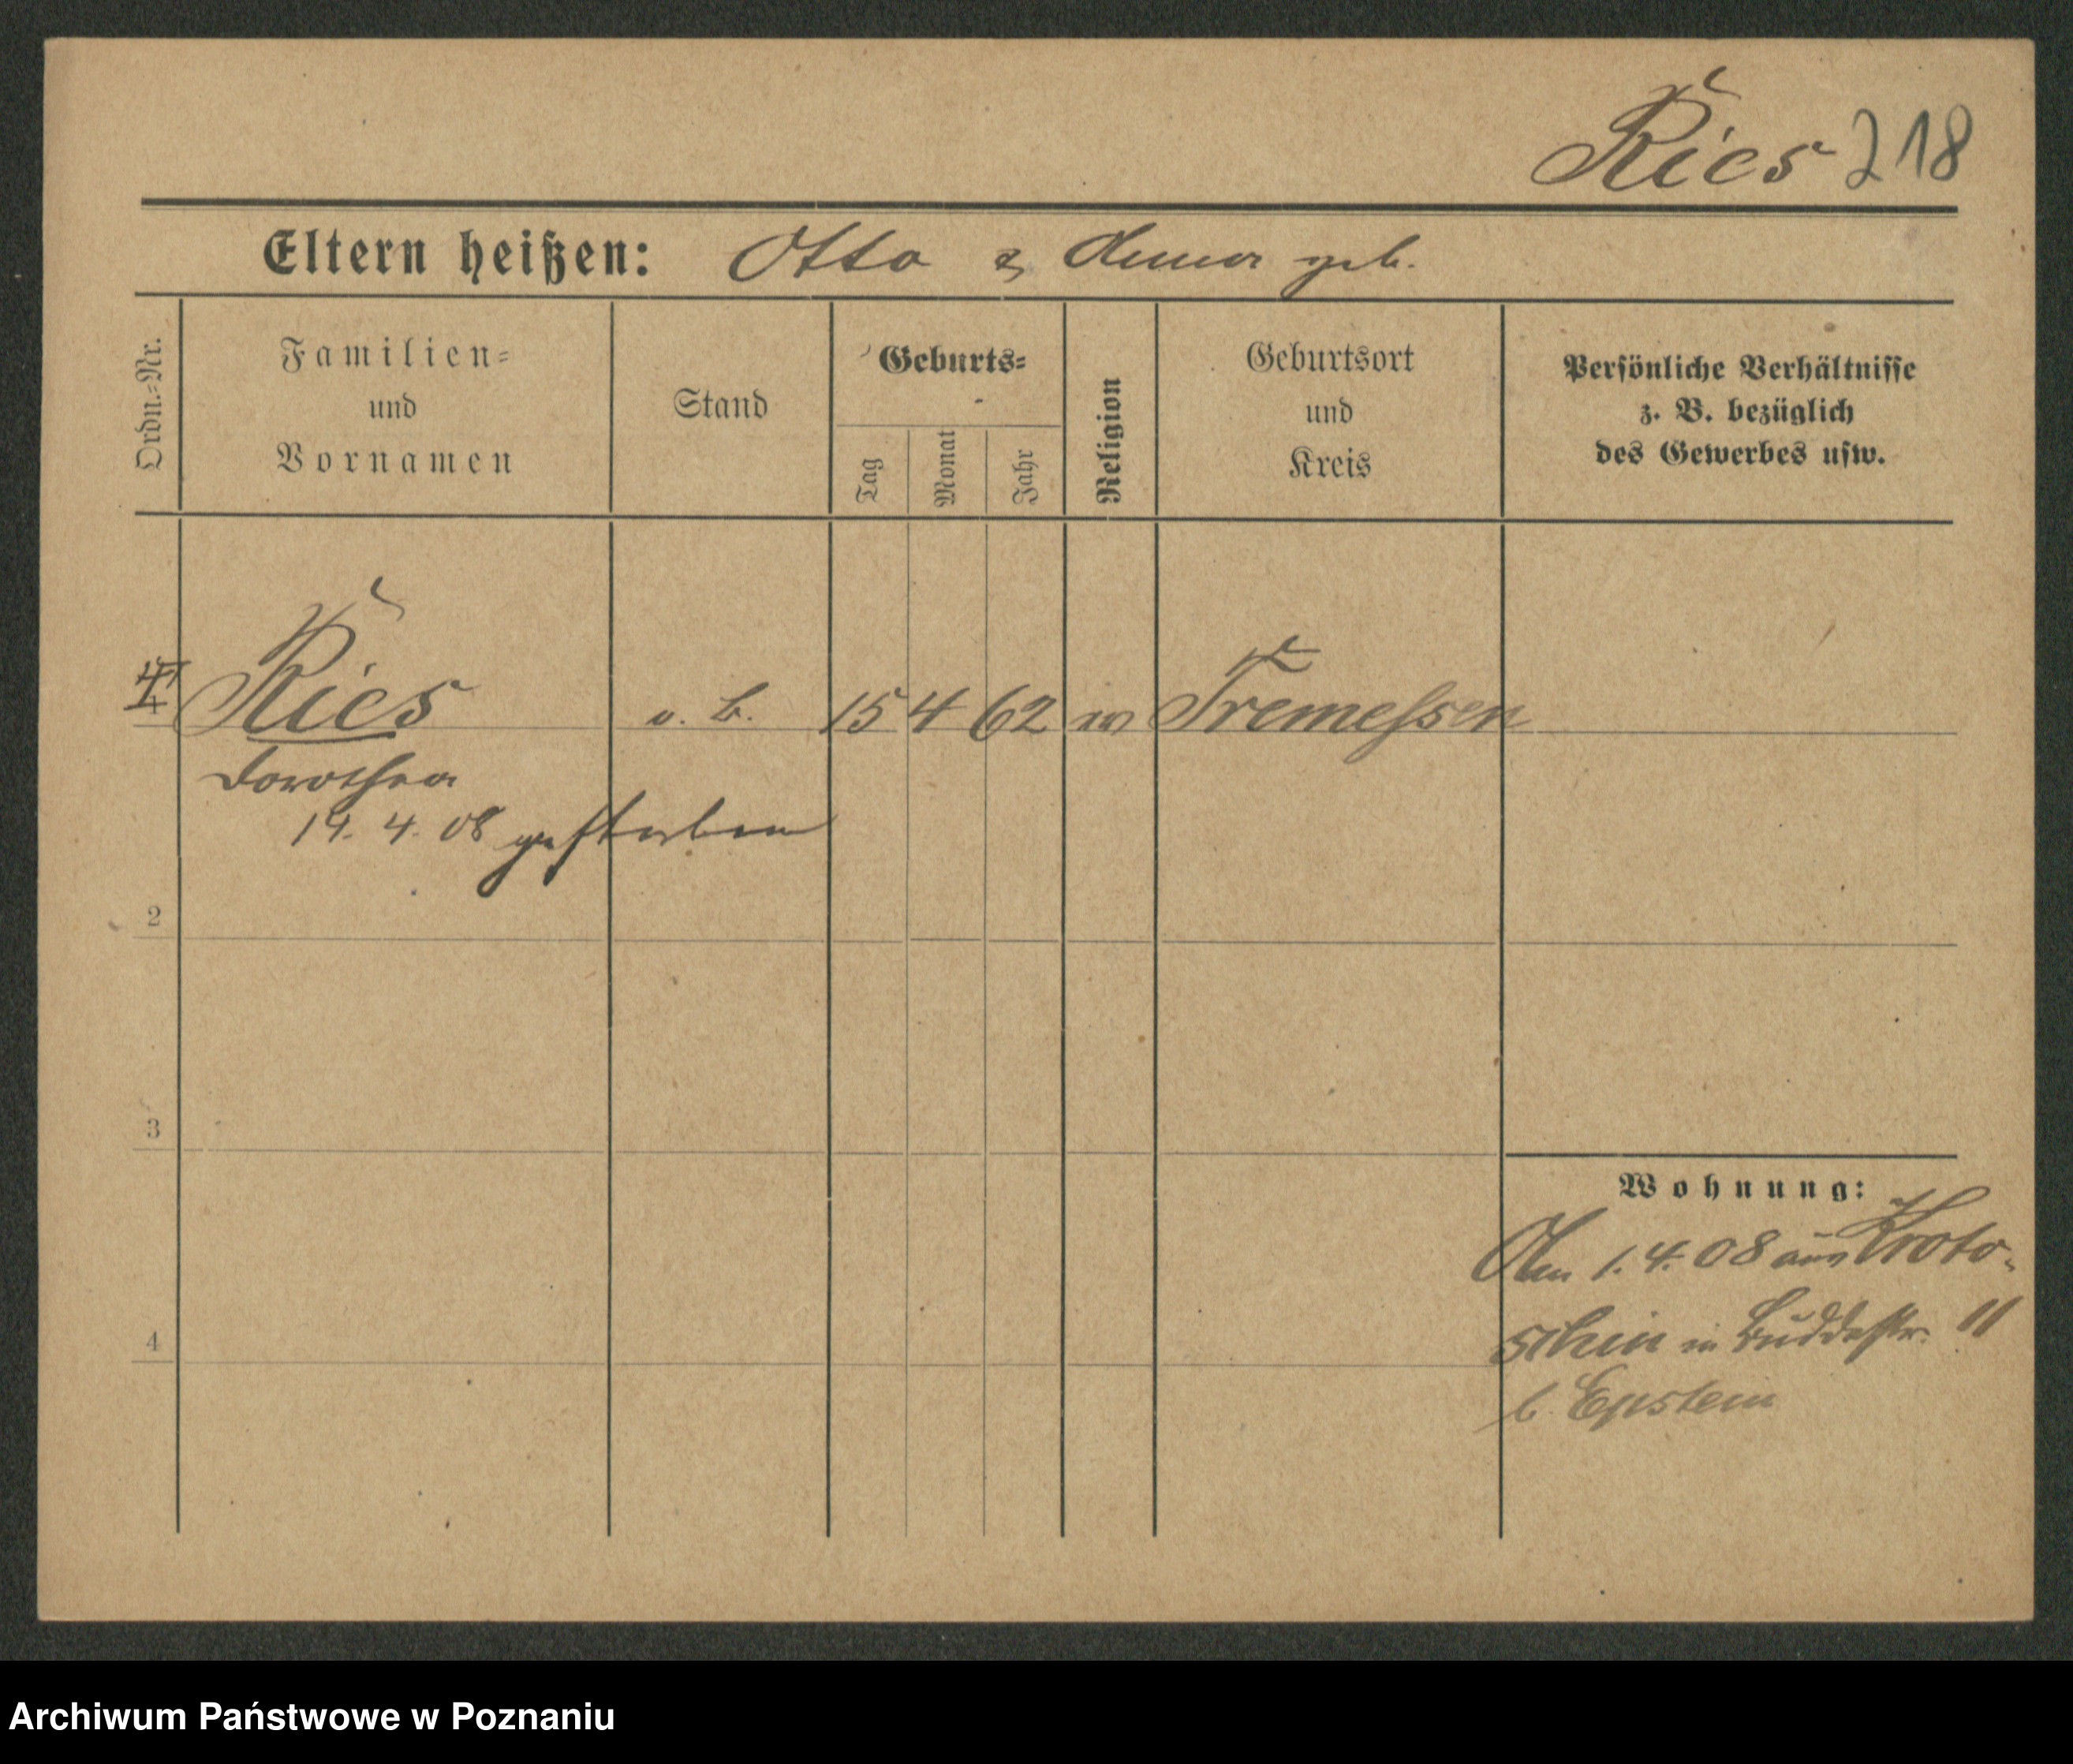 Ries 218
Eltern heißen: Otto & Anna geb.
Ordn.-Nr.
Familien-
und
Vornamen
Stand
Geburts-
Tag
Monat
Jahr
Religion
Geburtsort
und
Kreis
Persönliche Verhältnisse
z. B. bezüglich
des Gewerbes usw.
Ries o. B. 15 4 62 Tremessen
Dorothea
14. 4. 08 gestorben
2
3
4
Wohnung:
Am 1.4.08 aus Kroto-
schin in Buddestr. 11
b. Epstein
Archiwum Państwowe w Poznaniu